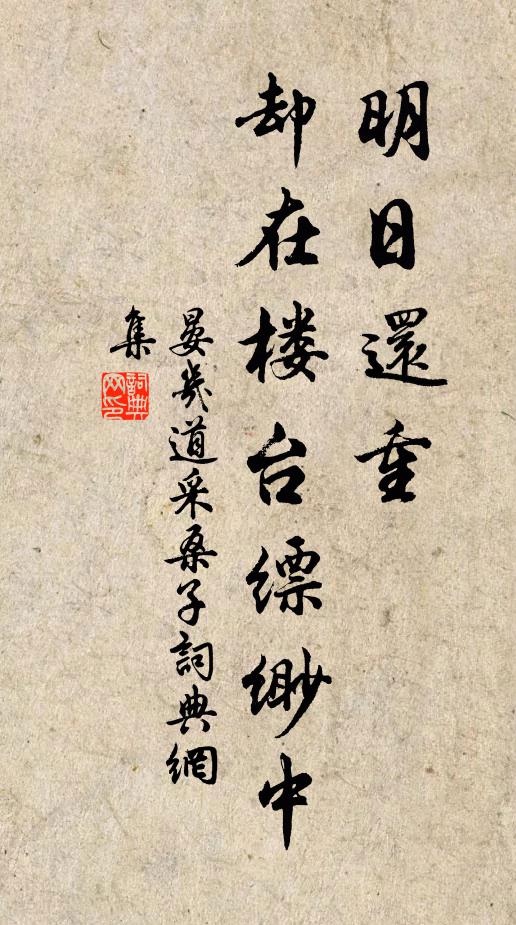 明日還重
却在楼台缥缈中
晏幾道采桑子詞典網
集
詞典
网印